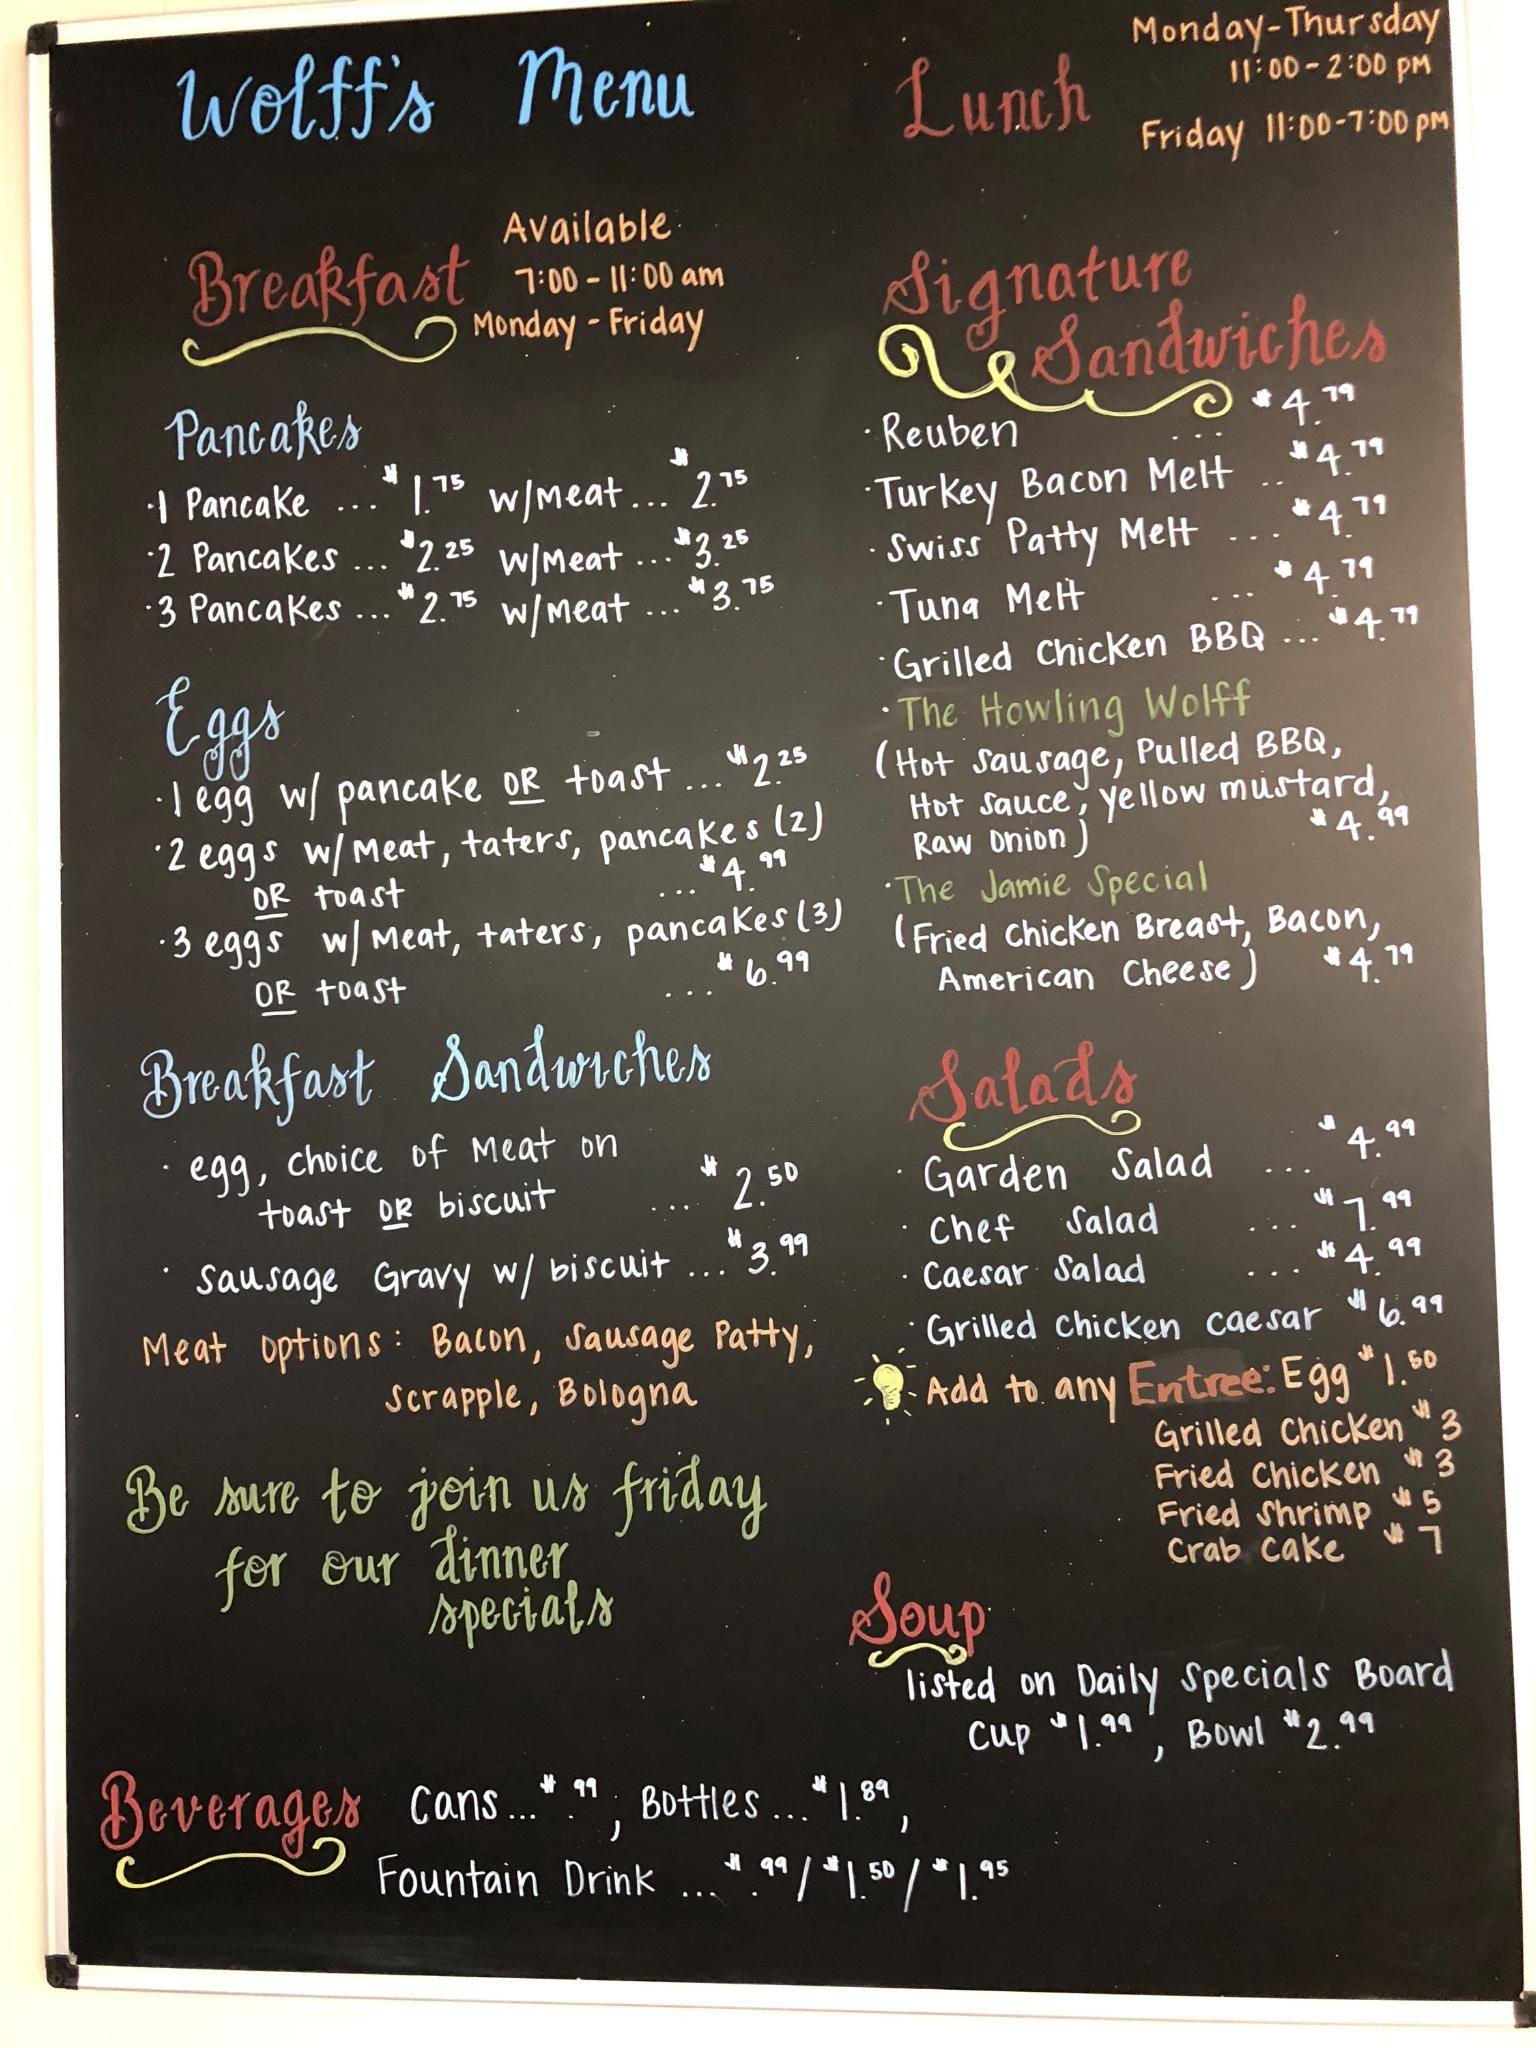 Wolff's Menu
Breakfast
Available
7:00 - 11:00 am
Monday - Friday
Pancakes
·1 Pancake ... $1.75 w/meat ... $2.75
·2 Pancakes ... $2.25 w/Meat ... $3.25
·3 Pancakes ... $2.75 w/meat ... $3.75
Eggs
·1 egg w/ pancake OR toast ... $2.25
·2 eggs w/Meat, taters, pancakes (2)
OR toast ... $4.99
·3 eggs w/Meat, taters, pancakes (3)
OR toast ... $6.99
Breakfast Sandwiches
· egg, choice of Meat on
toast OR biscuit ... $2.50
· Sausage Gravy w/ biscuit ... $3.99
Meat options: Bacon, Sausage Patty,
Scrapple, Bologna
Be sure to join us friday
for our dinner
specials
Lunch
Monday-Thursday
11:00 - 2:00 PM
Friday 11:00-7:00 PM
Signature
Sandwiches
·Reuben ... $4.79
·Turkey Bacon Melt .. $4.79
·Swiss Patty Melt ... $4.79
·Tuna Melt ... $4.79
·Grilled Chicken BBQ ... $4.79
·The Howling Wolff
(Hot Sausage, Pulled BBQ,
Hot Sauce, yellow mustard,
Raw Onion) $4.99
·The Jamie Special
(Fried Chicken Breast, Bacon,
American Cheese) $4.79
Salads
· Garden Salad ... $4.99
· Chef Salad ... $7.99
· Caesar Salad ... $4.99
· Grilled Chicken caesar $6.99
Add to any Entree: Egg $1.50
Grilled Chicken $3
Fried Chicken $3
Fried Shrimp $5
Crab Cake $7
Soup
listed on Daily Specials Board
Cup $1.99, Bowl $2.99
Beverages
Cans ... $.99, Bottles ... $1.89,
Fountain Drink ... $.99/$1.50/$1.95